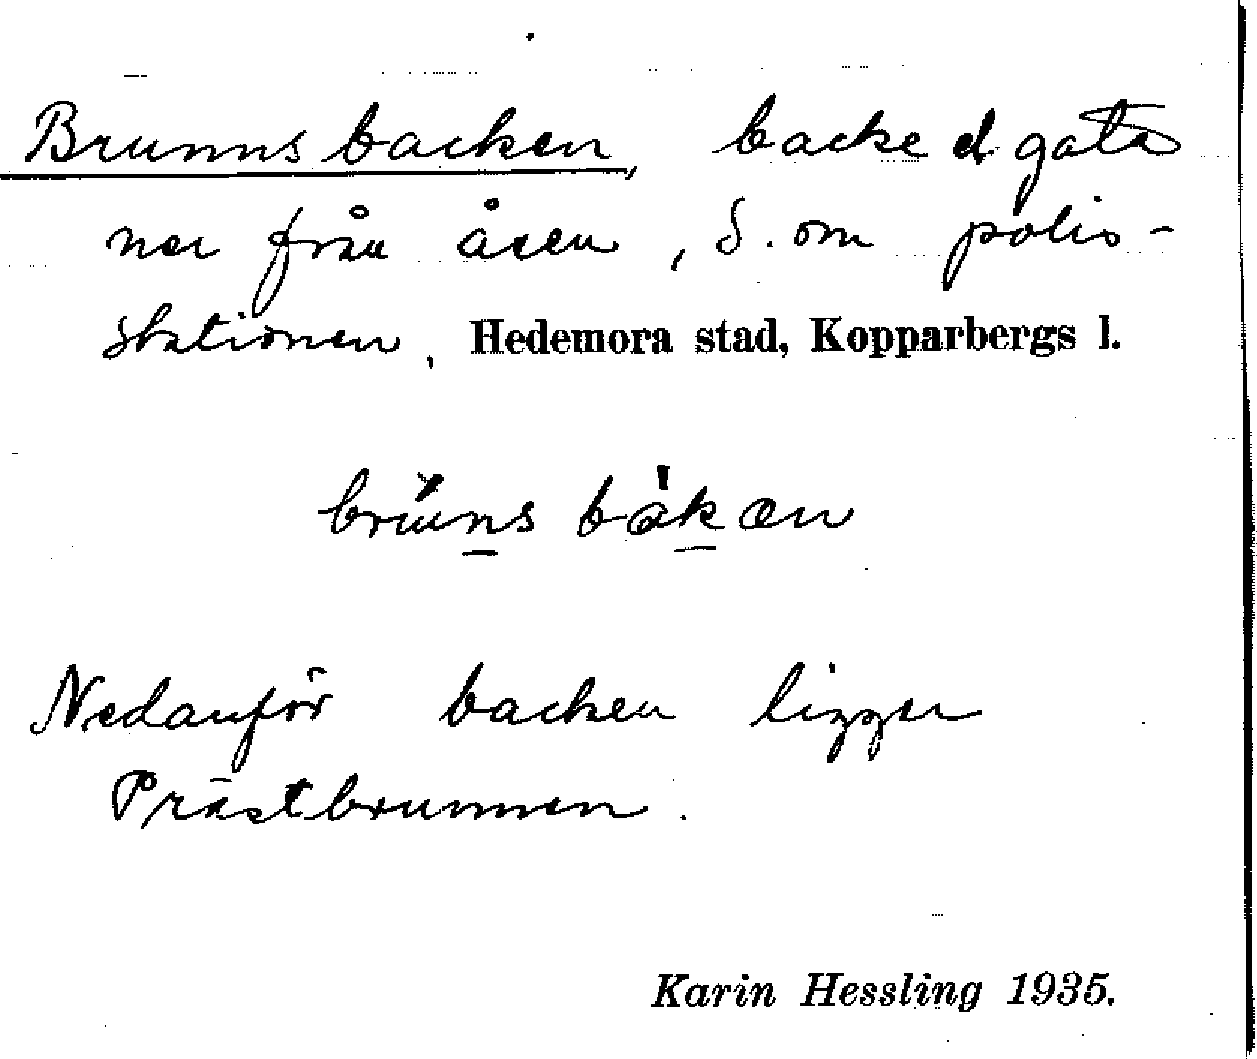 Brunnsbacken, backe el gata
ner från åsen, S. om polis-
stationen, Hedemora stad, Kopparbergs l.
brùns bákæn
Nedanför backen ligger
Prästbrunnen.
Karin Hessling 1935.